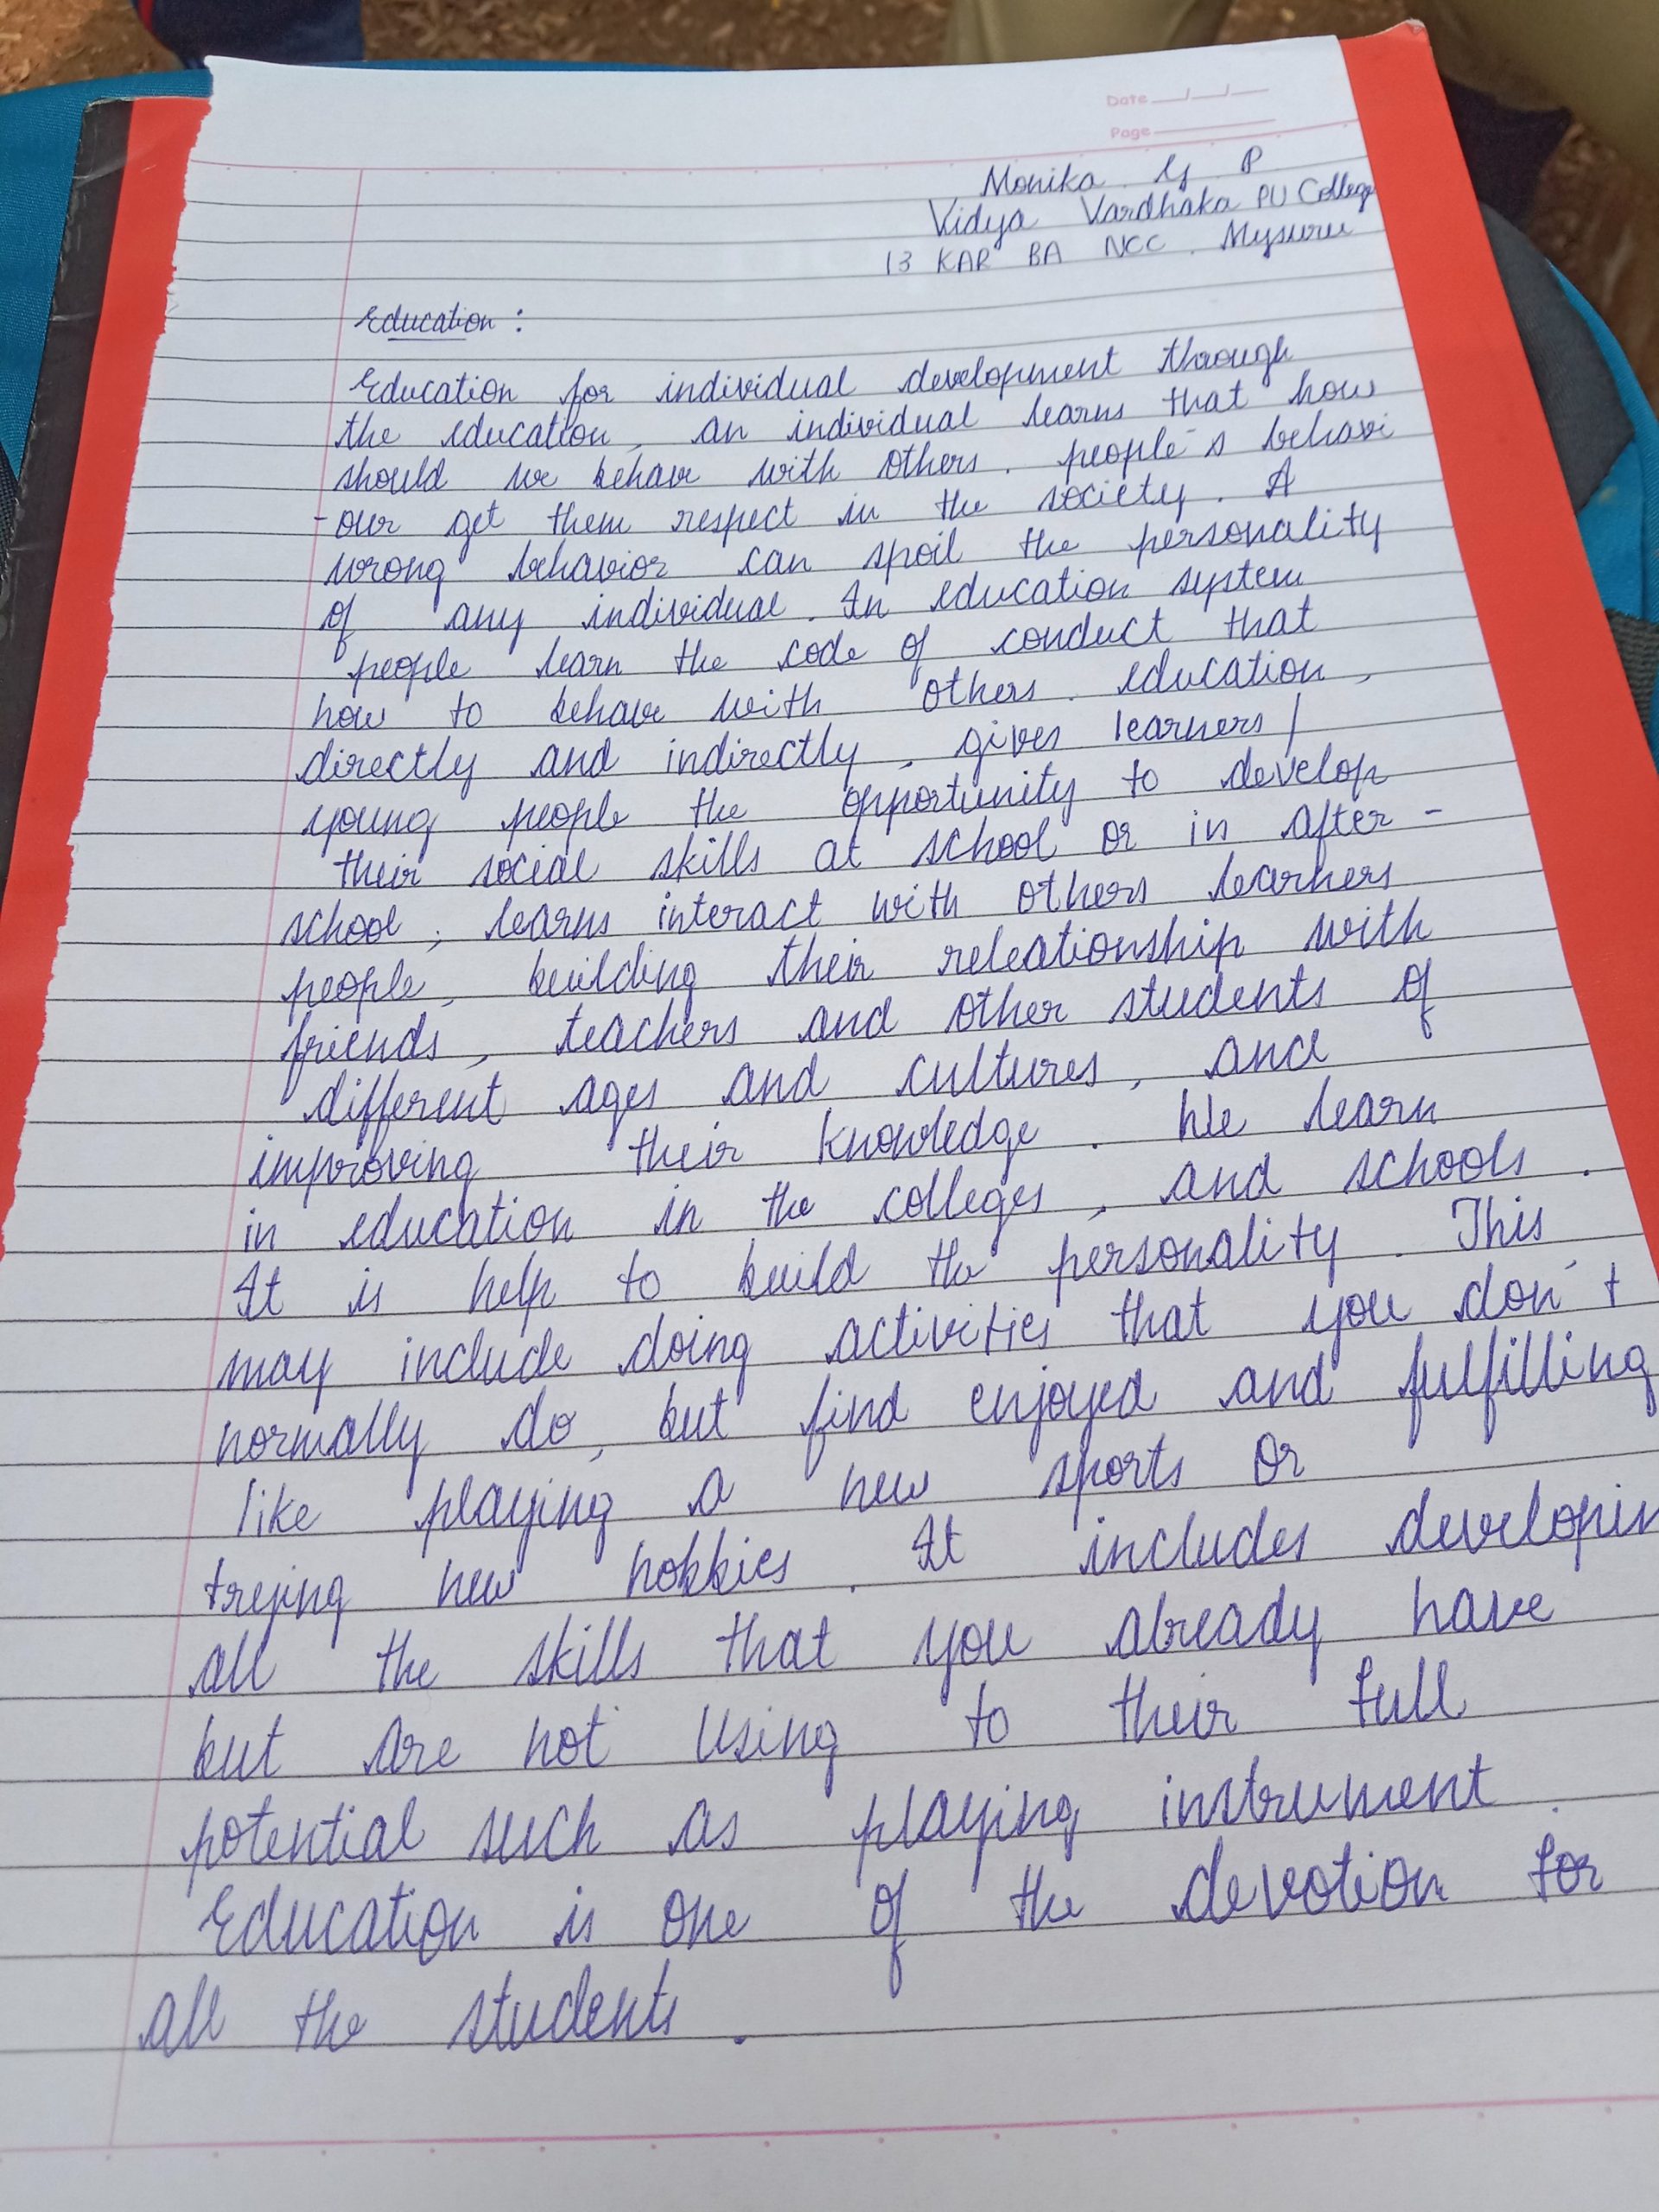 Date
Page
Monika . G . P
Vidya Vardhaka PU College
13 KAR BA NCC . Mysuru
Education :
Education for individual development through
the education, an individual learns that how
should we behave with others. people's behavi
-our get them respect in the society. A
wrong behavior can spoil the personality
of any individual. In education system
people learn the code of conduct that
how to behave with others. education,
directly and indirectly, gives learners/
young people the opportunity to develop
their social skills at school or in after-
school; learns interact with others learners
people, building their releationship with
friends, teachers and other students of
different ages and cultures, and
improving their knowledge. We learn
in education in the colleges, and schools.
It is help to build the personality. This
may include doing activities that you don't
normally do, but find enjoyed and fulfilling
like playing a new sports or
treying new hobbies. It includes developin
all the skills that you already have
but are not using to their full
potential such as playing instrument.
Education is one of the devotion for
all the students.